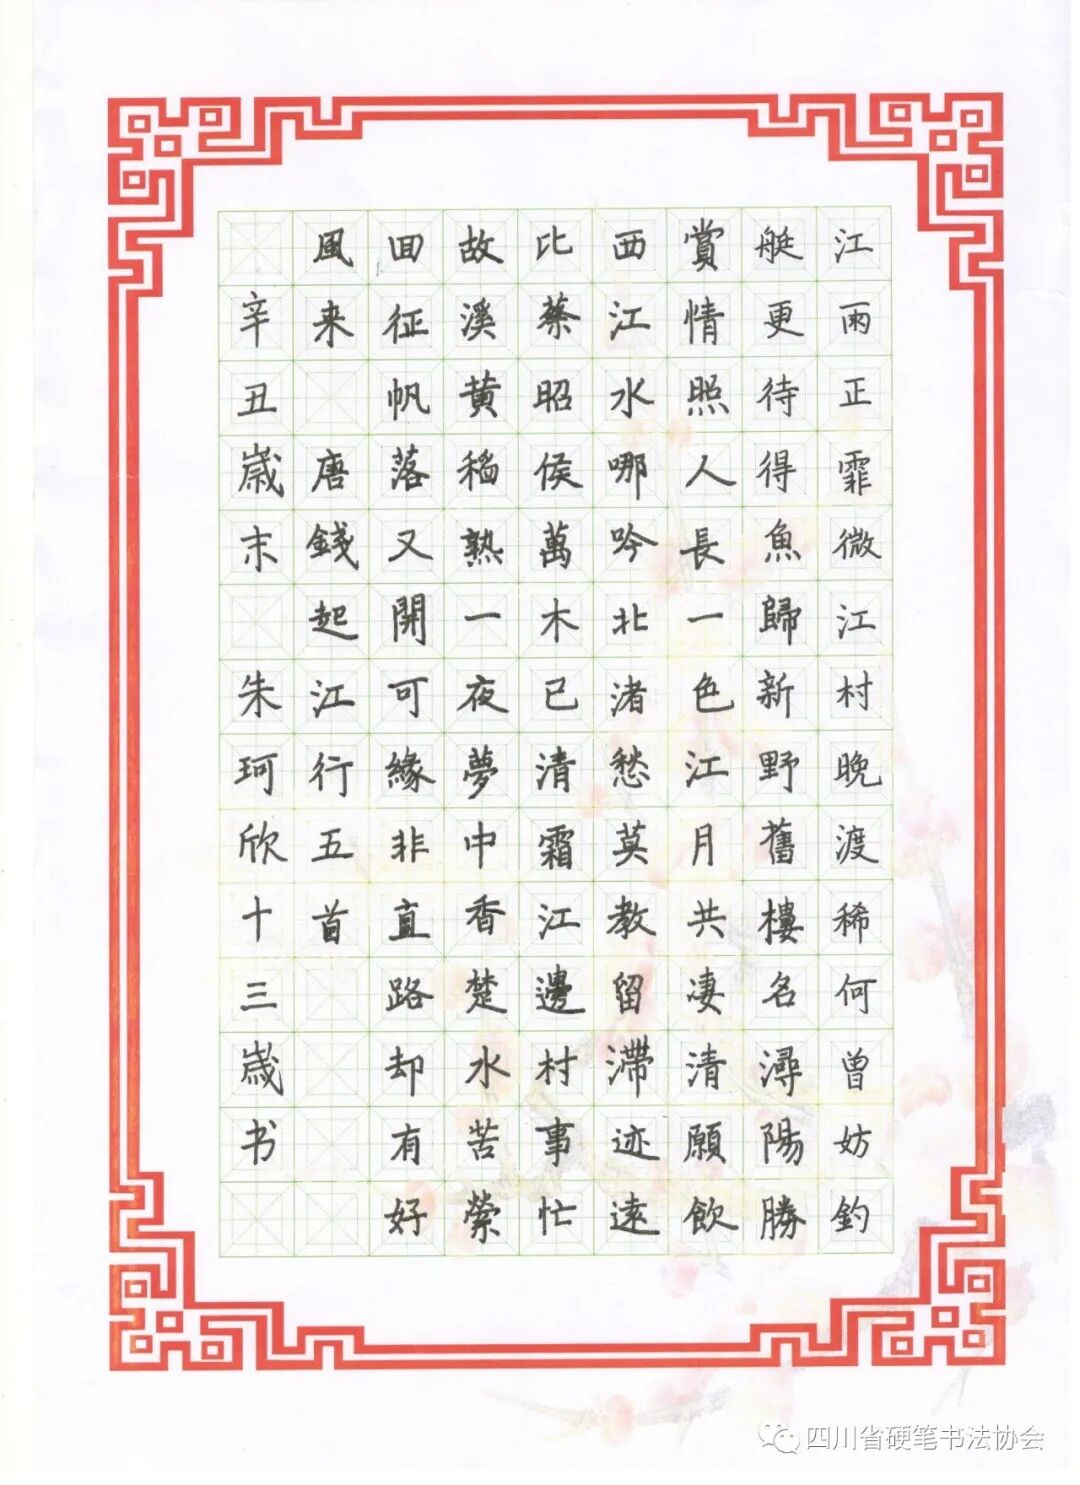 江雨正霏微江村晚渡稀何曾妨釣
艇更待得魚歸新野舊樓名潯陽勝
賞情照人長一色江月共凄清願飲
西江水哪吟北渚愁莫教留滯迹遠
比蔡昭侯萬木已清霜江邊村事忙
故溪黄稻熟一夜夢中香楚水苦縈
回征帆落又開可緣非直路却有好
風来 唐錢起江行五首
辛丑歲末 朱珂欣十三歲书
四川省硬笔书法协会